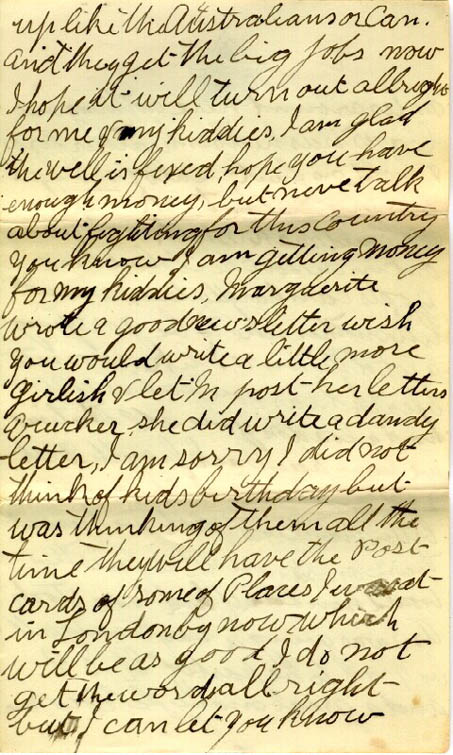 up like the Australians or Can.
and they get the big jobs now
I hope it will turn out allright
for me & my kiddies, I am glad
the well is fixed, hope you have
enough money, but never talk
about fighting for this country
you know I am getting money
for my kiddies, Marguerite
wrote a good newsletter wish
you would write a little more
girlish & let M post her letters
she did write a dandy
letter, I am sorry I did not
think of kids birthday but
was thinking of them all the
time they will have the Post
cards of some of Places I was at
in London by now which
will be as good, I do not
get the word allright
but I can let you know